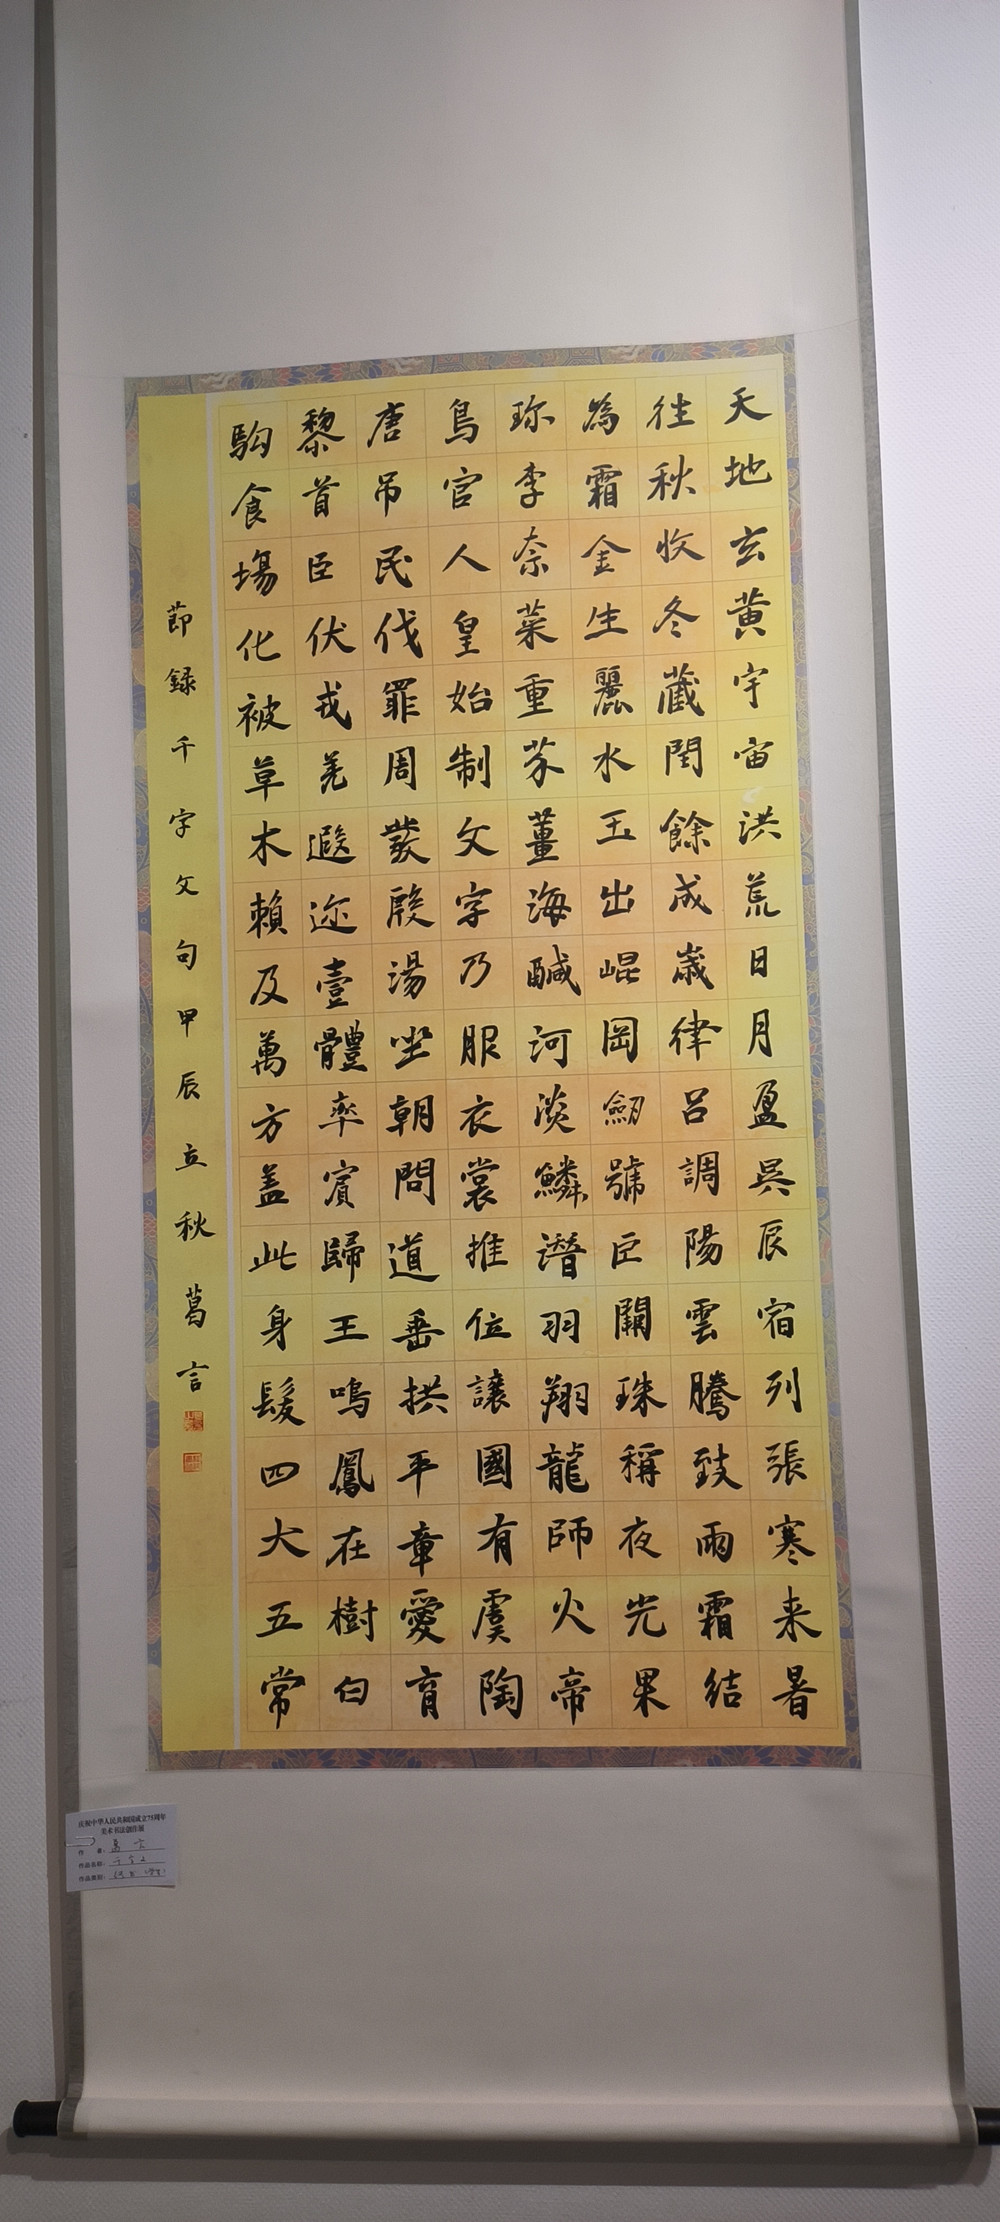 天地玄黄宇宙洪荒日月盈昃辰宿列張寒来暑
往秋收冬藏閏餘成歳律吕調陽雲騰致雨霜結
為霜金生麗水玉出崐岡劒號巨闕珠稱夜光果
珎李柰菜重芥薑海鹹河淡鱗潛羽翔龍師火帝
鳥官人皇始制文字乃服衣裳推位讓國有虞陶
唐吊民伐罪周發殷湯坐朝問道垂拱平章愛育
黎首臣伏戎羌遐迩壹體率賓歸王鳴鳳在樹白
駒食場化被草木賴及萬方盖此身髮四大五常
節録千字文句甲辰立秋葛言
庆祝中华人民共和国成立75周年
美术书法创作展
作 者：葛言
作品名称：千字文
作品类别：